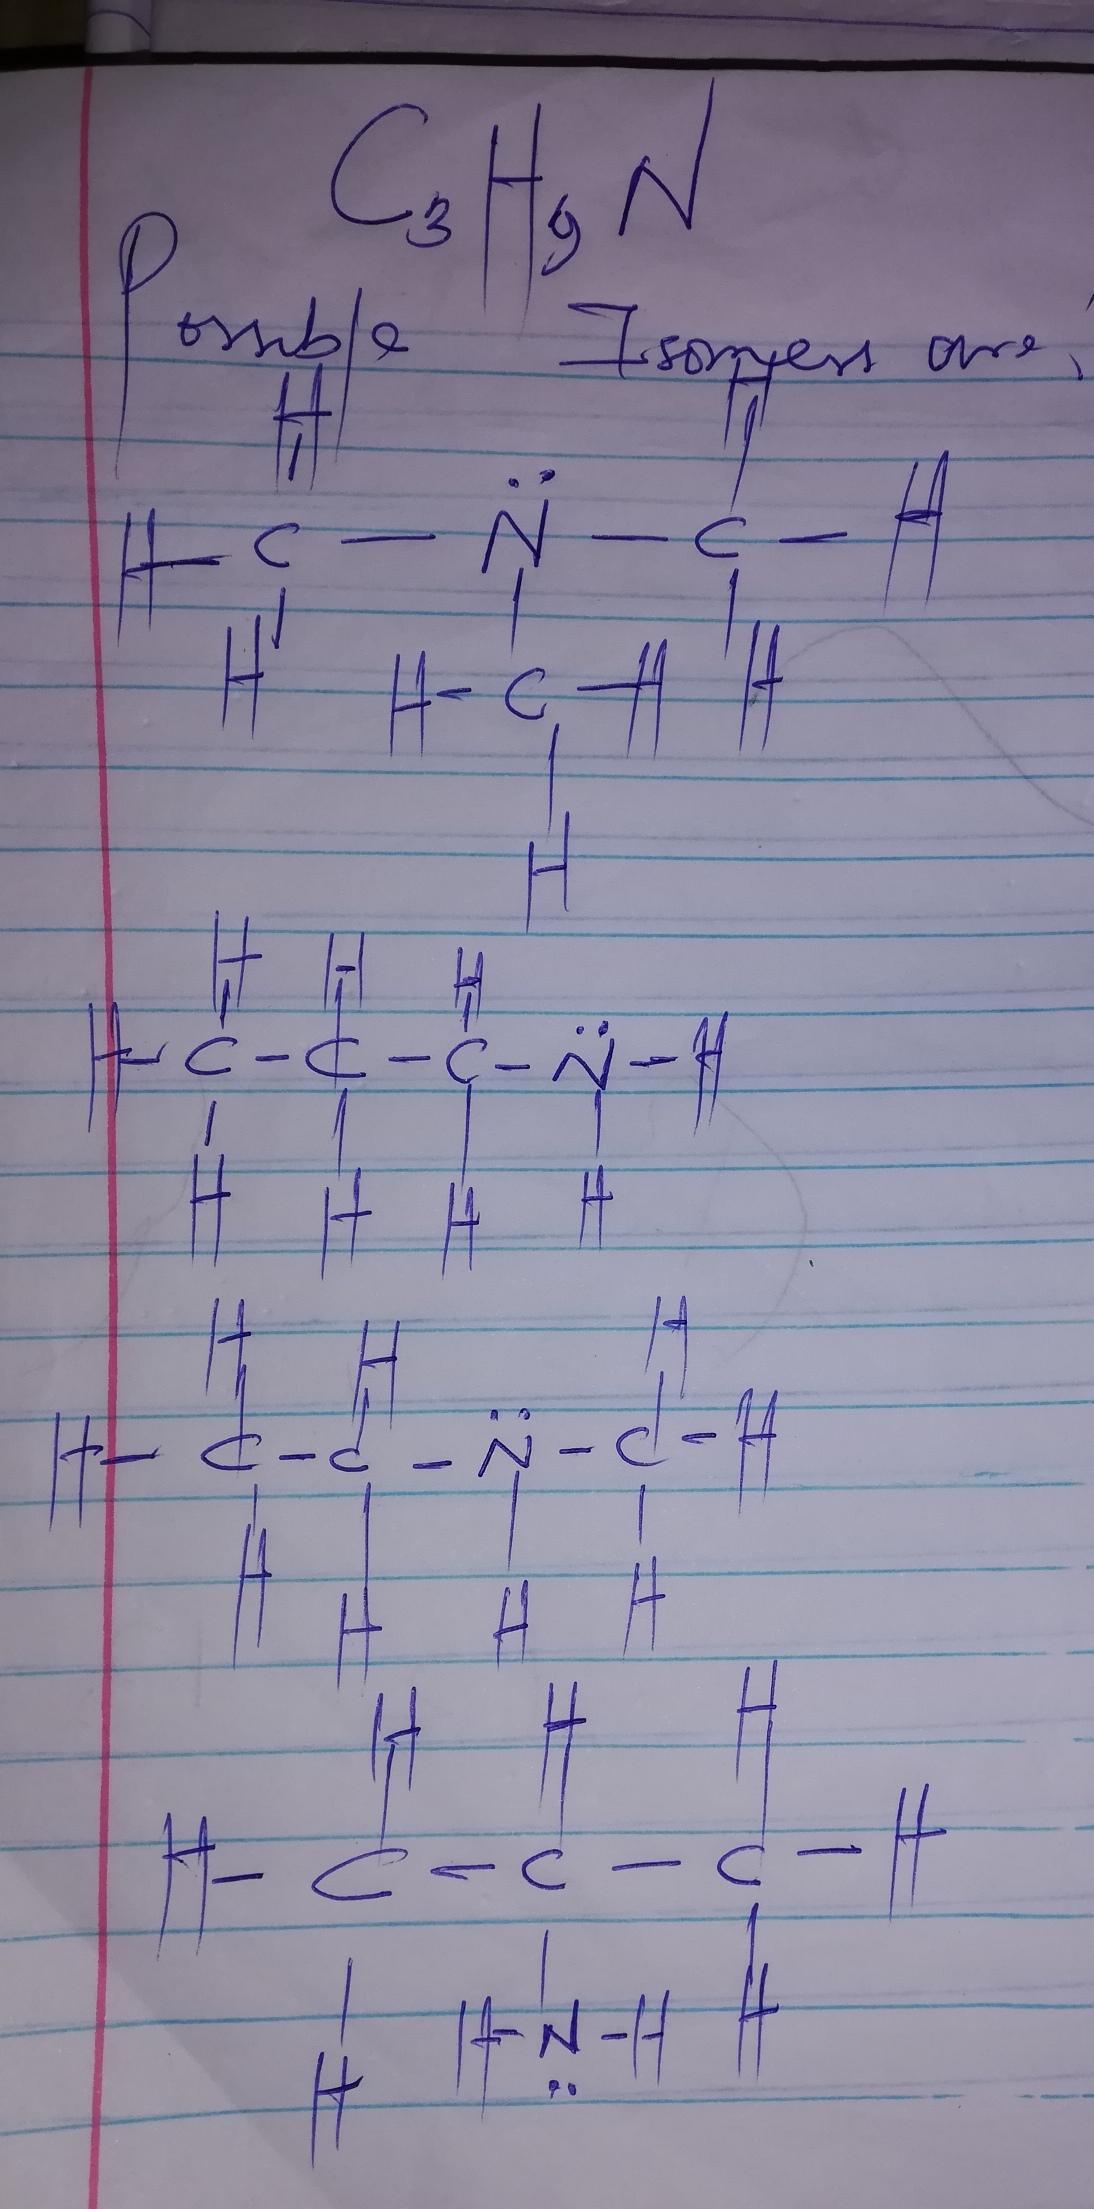 C₃H₉N
Possible Isomers are,
H H
H-C-N̈-C-H
H H-C-H H
H
H H H
H-C-C-C-N̈-H
H H H H
H H H
H-C-C-N̈-C-H
H H H H
H H H
H-C-C-C-H
H H-N̤-H H